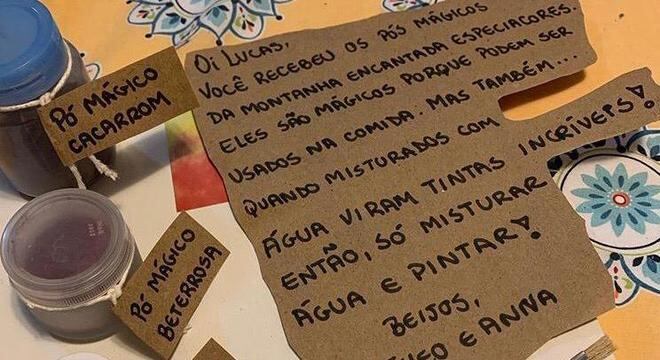 Pó MÁGICO
CACARROM
Pó MÁGICO
BETERROSA
OI LUCAS,
VOCÊ RECEBEU OS PÓS MÁGICOS
DA MONTANHA ENCANTADA ESPECIACORES.
ELES SÃO MÁGICOS PORQUE PODEM SER
USADOS NA COMIDA. MAS TAMBÉM...
QUANDO MISTURADOS COM
ÁGUA VIRAM TINTAS INCRÍVEIS!
ENTÃO, SÓ MISTURAR
ÁGUA E PINTAR!
BEIJOS,
E ANNA